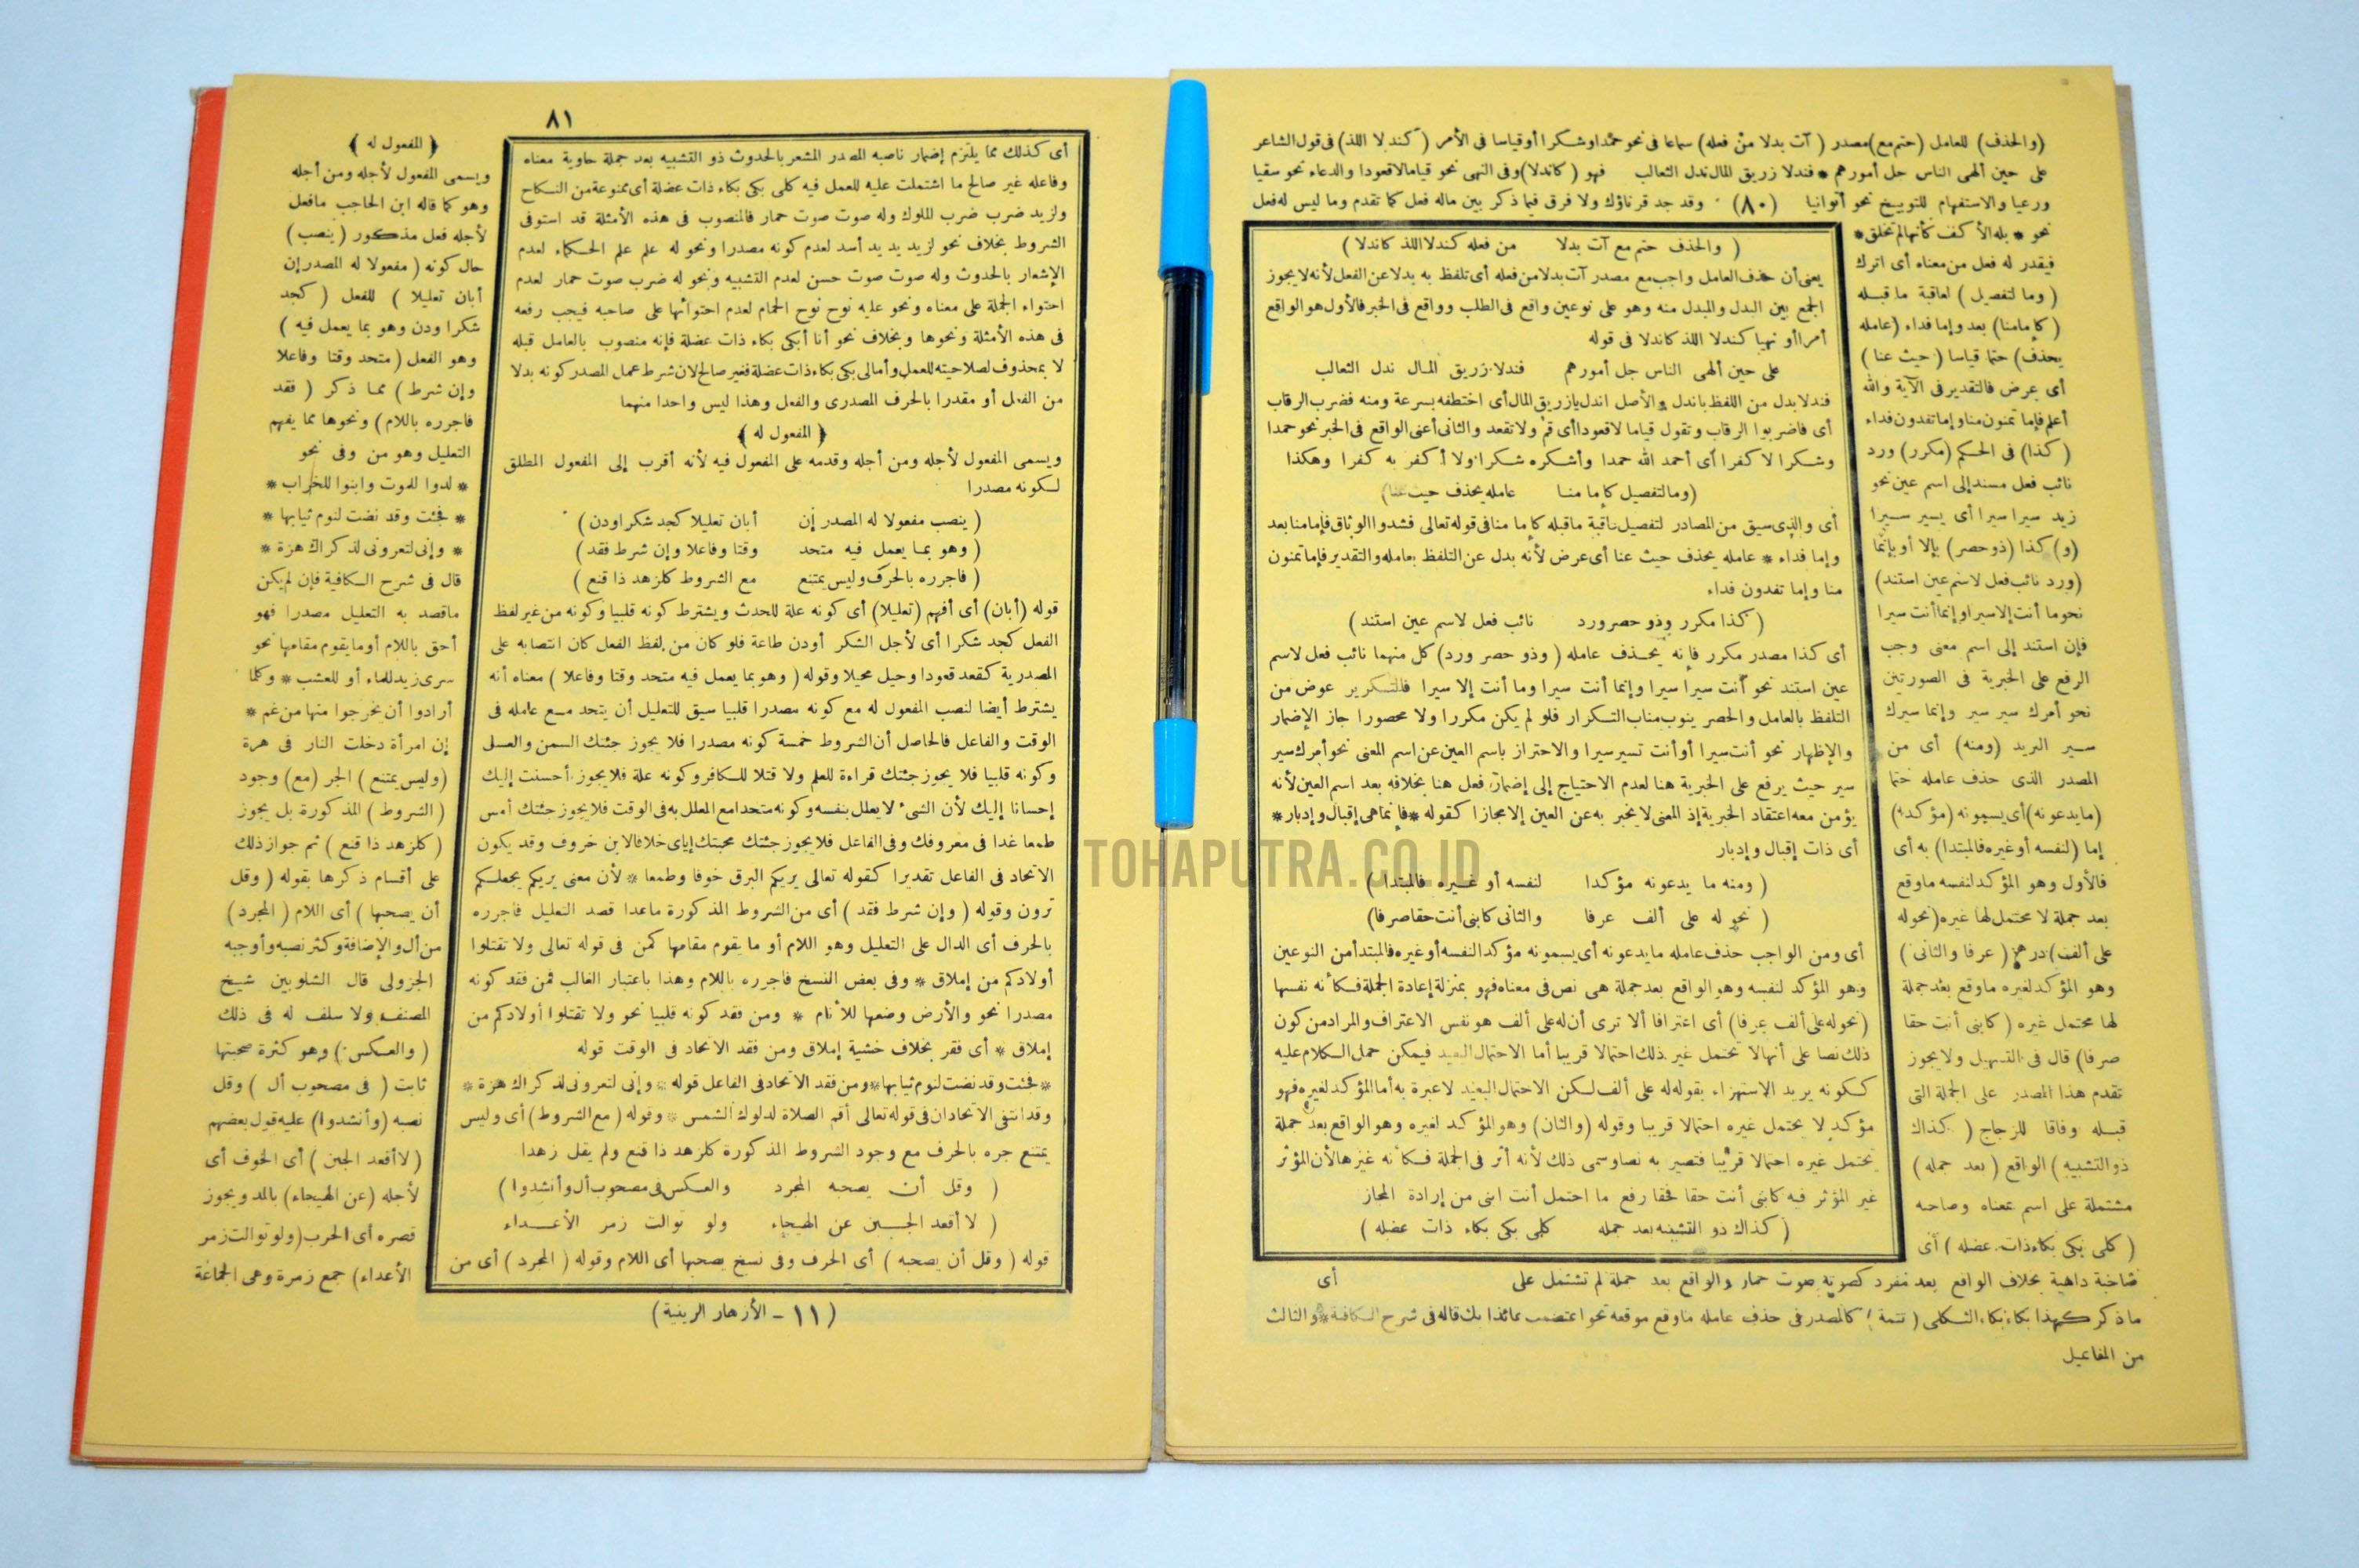 (والحذف) للعامل (حتم مع) مصدر (آت بدلا من فعله) سماعا فى نحو حمدا وشكرا أو قياسا فى الأمر (كندلا اللذ) فى قول الشاعر
على حين ألهى الناس جل أمورهم * فندلا زريق المال ندل الثعالب فهو (كاندلا) وفى النهى نحو قياما لا قعودا والدعاء نحو سقيا
ورعيا والاستفهام للتوبيخ نحو أتوانيا (٨٠) وقد جد قرناؤك ولا فرق فيما ذكر بين ماله فعل كما تقدم وما ليس له فعل
نحو * بله الأكف كأنها لم تخلق *
فيقدر له فعل من معناه أى اترك
(وما لتفصيل) لعاقبة ما قبله
(كإمامنا) بعد وإما فداء (عامله
يحذف) حتما قياسا (حيث عنا)
أى عرض فالتقدير فى الآية والله
أعلم فإما تمنون منا وإما تفدون فداء
(كذا) فى الحكم (مكرر) ورد
نائب فعل مسند إلى اسم عين نحو
زيد سيرا سيرا أى يسير سيرا
(و) كذا (ذو حصر) بإلا أو بإنما
(ورد نائب فعل لاسم عين استند)
نحو ما أنت إلا سيرا وإنما أنت سيرا
فإن استند إلى اسم معنى وجب
الرفع على الخبرية فى الصورتين
نحو أمرك سير سير وإنما سيرك
سير البريد (ومنه) أى من
المصدر الذى حذف عامله حتما
(ما يدعونه) أى يسمونه (مؤكدا)
إما (لنفسه أو غيره فالمبتدا) به أى
فالأول وهو المؤكد لنفسه ما وقع
بعد جملة لا محتمل لها غيره (نحو له
على ألف) درهم (عرفا والثانى)
وهو المؤكد لغيره ما وقع بعد جملة
لها محتمل غيره (كابنى أنت حقا
صرفا) قال فى التسهيل ولا يجوز
تقدم هذا المصدر على الجملة التى
قبله وفاقا للزجاج (كذاك
ذو التشبيه) الواقع (بعد جمله)
مشتملة على اسم بمعناه وصاحبه
(كلى بكى بكاء ذات عضله) أى
(والحذف حتم مع آت بدلا من فعله كندلا اللذ كاندلا)
يعنى أن حذف العامل واجب مع مصدر آت بدلا من فعله أى تلفظ به بدلا عن الفعل لأنه لا يجوز
الجمع بين البدل والمبدل منه وهو على نوعين واقع فى الطلب وواقع فى الخبر فالأول هو الواقع
أمرا أو نهيا كندلا اللذ كاندلا فى قوله
على حين ألهى الناس جل أمورهم فندلا زريق المال ندل الثعالب
فندلا بدل من اللفظ باندل والأصل اندل يا زريق المال أى اختطفه بسرعة ومنه فضرب الرقاب
أى فاضربوا الرقاب وتقول قياما لا قعودا أى قم ولا تقعد والثانى أعنى الواقع فى الخبر نحو حمدا
وشكرا لا كفرا أى أحمد الله حمدا وأشكره شكرا ولا أكفر به كفرا وهكذا
(وما لتفصيل كإما منا عامله يحذف حيث عنا)
أى والذى سيق من المصادر لتفصيل عاقبة ما قبله كإما منا فى قوله تعالى فشدوا الوثاق فإما منا بعد
وإما فداء * عامله يحذف حيث عنا أى عرض لأنه بدل عن التلفظ بعامله والتقدير فإما تمنون
منا وإما تفدون فداء
(كذا مكرر وذو حصر ورد نائب فعل لاسم عين استند)
أى كذا مصدر مكرر فإنه يحذف عامله (وذو حصر ورد) كل منهما نائب فعل لاسم
عين استند نحو أنت سيرا سيرا وإنما أنت سيرا وما أنت إلا سيرا فالتكرير عوض من
التلفظ بالعامل والحصر ينوب مناب التكرار فلو لم يكن مكررا ولا محصورا جاز الإضمار
والإظهار نحو أنت سيرا أو أنت تسير سيرا والاحتراز باسم العين عن اسم المعنى نحو أمرك سير
سير حيث يرفع على الخبرية هنا لعدم الاحتياج إلى إضمار فعل هنا بخلافه بعد اسم العين لأنه
يؤمن معه اعتقاد الخبرية إذ المعنى لا يخبر به عن العين إلا مجازا كقوله * فإنما هى إقبال وإدبار *
أى ذات إقبال وإدبار
(ومنه ما يدعونه مؤكدا لنفسه أو غيره فالمبتدا)
(نحو له على ألف عرفا والثانى كابنى أنت حقا صرفا)
أى ومن الواجب حذف عامله ما يدعونه أى يسمونه مؤكدا لنفسه أو غيره فالمبتدأ من النوعين
وهو المؤكد لنفسه وهو الواقع بعد جملة هى نص فى معناه فهو بمنزلة إعادة الجملة فكأنه نفسها
(نحو له على ألف عرفا) أى اعترافا ألا ترى أن له على ألف هو نفس الاعتراف والمراد من كون
ذلك نصا على أنها لا تحتمل غير ذلك احتمالا قريبا أما الاحتمال البعيد فيمكن حمل الكلام عليه
ككونه يريد الاستهزاء بقوله له على ألف لكن الاحتمال البعيد لا عبرة به أما المؤكد لغيره فهو
مؤكد لا يحتمل غيره احتمالا قريبا وقوله (والثان) وهو المؤكد لغيره وهو الواقع بعد جملة
يحتمل غيره احتمالا قريبا فتصير به نصا وسمى ذلك لأنه أثر فى الجملة فكأنه غيرها لأن المؤثر
غير المؤثر فيه كابنى أنت حقا فحقا رفع ما احتمل أنت ابنى من إرادة المجاز
(كذاك ذو التشبيه بعد جمله كلى بكى بكاء ذات عضله)
صاحبة داهية بخلاف الواقع بعد مفرد كصوته صوت حمار والواقع بعد جملة لم تشتمل على أى
ما ذكر كهذا بكاء بكاء الثكلى (تتمة) كالمصدر فى حذف عامله ما وقع موقعه نحو اعتصمت عائذا بك قاله فى شرح الكافية * والثالث
من المفاعيل
٨١
أى كذلك مما يلتزم إضمار ناصبه المصدر المشعر بالحدوث ذو التشبيه بعد جملة حاوية معناه
وفاعله غير صالح ما اشتملت عليه للعمل فيه كلى بكى بكاء ذات عضلة أى ممنوعة من النكاح
ولزيد ضرب ضرب الملوك وله صوت صوت حمار فالمنصوب فى هذه الأمثلة قد استوفى
الشروط بخلاف نحو لزيد يد يد أسد لعدم كونه مصدرا ونحو له علم علم الحكماء لعدم
الإشعار بالحدوث وله صوت صوت حسن لعدم التشبيه ونحو له ضرب صوت حمار لعدم
احتواء الجملة على معناه ونحو عليه نوح نوح الحمام لعدم احتوائها على صاحبه فيجب رفعه
فى هذه الأمثلة ونحوها وبخلاف نحو أنا أبكى بكاء ذات عضلة فإنه منصوب بالعامل قبله
لا بمحذوف لصلاحيته للعمل وأما لى بكى بكاء ذات عضلة فغير صالح لان شرط عمل المصدر كونه بدلا
من الفعل أو مقدرا بالحرف المصدرى والفعل وهذا ليس واحدا منهما
﴿المفعول له﴾
ويسمى المفعول لأجله ومن أجله وقدمه على المفعول فيه لأنه أقرب إلى المفعول المطلق
لكونه مصدرا
(ينصب مفعولا له المصدر إن أبان تعليلا كجد شكرا ودن)
(وهو بما يعمل فيه متحد وقتا وفاعلا وإن شرط فقد)
(فاجرره بالحرف وليس يمتنع مع الشروط كلزهد ذا قنع)
قوله (أبان) أى أفهم (تعليلا) أى كونه علة للحدث ويشترط كونه قلبيا وكونه من غير لفظ
الفعل كجد شكرا أى لأجل الشكر أو دن طاعة فلو كان من لفظ الفعل كان انتصابه على
المصدرية كقعد قعودا وحيل محيلا وقوله (وهو بما يعمل فيه متحد وقتا وفاعلا) معناه أنه
يشترط أيضا لنصب المفعول له مع كونه مصدرا قلبيا سيق للتعليل أن يتحد مع عامله فى
الوقت والفاعل فالحاصل أن الشروط خمسة كونه مصدرا فلا يجوز جئتك السمن والعسل
وكونه قلبيا فلا يجوز جئتك قراءة للعلم ولا قتلا للكافر وكونه علة فلا يجوز أحسنت إليك
إحسانا إليك لأن الشىء لا يعلل بنفسه وكونه متحدا مع المعلل به فى الوقت فلا يجوز جئتك أمس
طمعا غدا فى معروفك وفى الفاعل فلا يجوز جئتك محبتك إياى خلافا لابن خروف وقد يكون
الاتحاد فى الفاعل تقديرا كقوله تعالى يريكم البرق خوفا وطمعا * لأن معنى يريكم يجعلكم
ترون وقوله (وإن شرط فقد) أى من الشروط المذكورة ماعدا قصد التعليل فاجرره
بالحرف أى الدال على التعليل وهو اللام أو ما يقوم مقامها كمن فى قوله تعالى ولا تقتلوا
أولادكم من إملاق * وفى بعض النسخ فاجرره باللام وهذا باعتبار الغالب فمن فقد كونه
مصدرا نحو والأرض وضعها للأنام * ومن فقد كونه قلبيا نحو ولا تقتلوا أولادكم من
إملاق * أى فقر بخلاف خشية إملاق ومن فقد الاتحاد فى الوقت قوله
* فجئت وقد نضت لنوم ثيابها * ومن فقد الاتحاد فى الفاعل قوله * وإنى لتعرونى لذكراك هزة *
وقد انتفى الاتحادان فى قوله تعالى أقم الصلاة لدلوك الشمس * وقوله (مع الشروط) أى وليس
يمتنع جره بالحرف مع وجود الشروط المذكورة كلزهد ذا قنع ولم يقل زهدا
(وقل أن يصحبه المجرد والعكس فى مصحوب أل وأنشدوا)
(لا أقعد الجبن عن الهيجاء ولو توالت زمر الأعداء
قوله (وقل أن يصحبه) أى الحرف وفى نسخ يصحبها أى اللام وقوله (المجرد) أى من
(١١ - الأزهار الزينية)
﴿المفعول له﴾
ويسمى المفعول لأجله ومن أجله
وهو كما قاله ابن الحاجب ما فعل
لأجله فعل مذكور (ينصب)
حال كونه (مفعولا له المصدر إن
أبان تعليلا) للفعل (كجد
شكرا ودن وهو بما يعمل فيه)
وهو الفعل (متحد وقتا وفاعلا
وإن شرط) مما ذكر (فقد
فاجرره باللام) ونحوها مما يفهم
التعليل وهو من وفى نحو
* لدوا للموت وابنوا للخراب *
* فجئت وقد نضت لنوم ثيابها *
* وإنى لتعرونى لذكراك هزة *
قال فى شرح الكافية فإن لم يكن
ما قصد به التعليل مصدرا فهو
أحق باللام أو ما يقوم مقامها نحو
سرى زيد للماء أو للعشب * وكلما
أرادوا أن يخرجوا منها من غم *
إن امرأة دخلت النار فى هرة
(وليس يمتنع) الجر (مع) وجود
(الشروط) المذكورة بل يجوز
(كلزهد ذا قنع) ثم جواز ذلك
على أقسام ذكرها بقوله (وقل
أن يصحبها) أى اللام (المجرد)
من أل والإضافة وكثر نصبه وأوجبه
الجزولى قال الشلوبين شيخ
المصنف ولا سلف له فى ذلك
(والعكس) وهو كثرة صحبتها
ثابت (فى مصحوب أل) وقل
نصبه (وأنشدوا) عليه قول بعضهم
(لا أقعد الجبن) أى الخوف أى
لأجله (عن الهيجاء) بالمد ويجوز
قصره أى الحرب (ولو توالت زمر
الأعداء) جمع زمرة وهى الجماعة
TOHAPUTRA.CO.ID